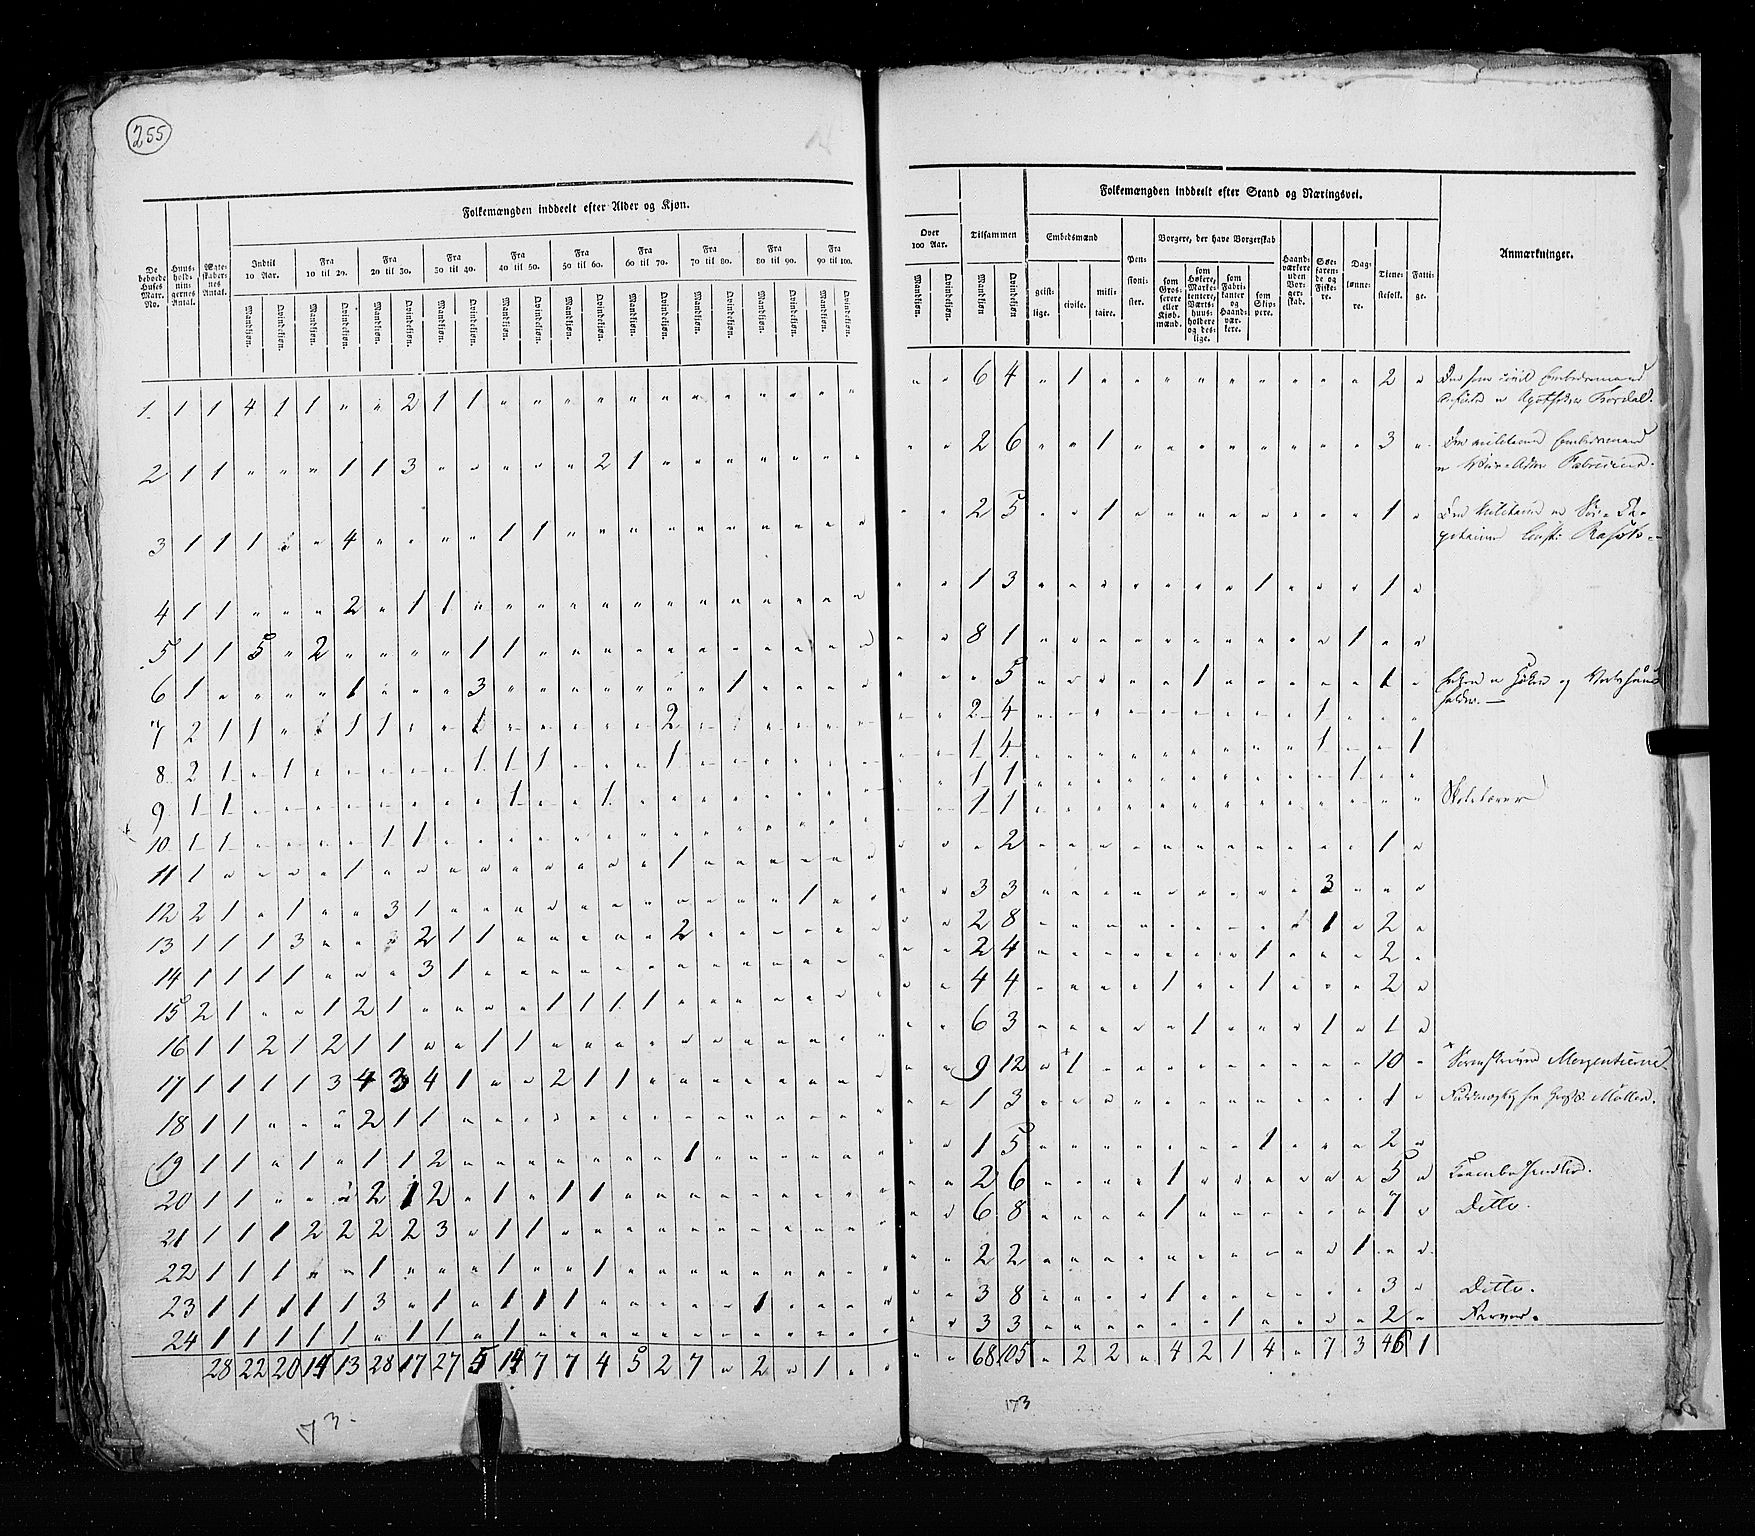 255
Folkemængden inddeelt efter Alder og Kjøn.
De beboede Huses Matr. No.
Huus-hold-nin-gernes Antal.
Ægte-skaber-nes Antal.
Indtil 10 Aar.
Fra 10 til 20.
Fra 20 til 30.
Fra 30 til 40.
Fra 40 til 50.
Fra 50 til 60.
Fra 60 til 70.
Fra 70 til 80.
Fra 80 til 90.
Fra 90 til 100.
Mandkjøn. Qvindekjøn. Mandkjøn. Qvindekjøn. Mandkjøn. Qvindekjøn. Mandkjøn. Qvindekjøn. Mandkjøn. Qvindekjøn. Mandkjøn. Qvindekjøn. Mandkjøn. Qvindekjøn. Mandkjøn. Qvindekjøn. Mandkjøn. Qvindekjøn. Mandkjøn. Qvindekjøn.
1. 1 1 4 1 1 " " 2 1 1 " " " " " " " " " " " "
2 1 1 " " " 1 1 3 " " " " " 2 1 " " " " " " "
3 1 1 1 " " 4 " " " " 1 1 " " " " " " " " " "
4 1 1 " " " 2 " 1 1 " " " " " " " " " " " " "
5 1 1 5 " 2 " " " " 1 1 " " " " " " " " " " "
6 1 " " " " 1 " " " 3 " " " " " " " 1 " " " "
7 2 1 1 " 1 1 " " 1 " " " " " 2 " " " " " "
8 2 1 " 1 " " " " " 1 1 1 " " " 1 " " " " " "
9 1 1 " " " " " " " " 1 " " 1 " " " " " " " "
10 1 1 " " " " 1 1 " " " " " " " " " " " " " "
11 1 " " " " 1 " " " " " " " " " 1 " " " " " "
12 2 1 " 1 " " 3 1 " " " " " " " " " " " 1 " "
13 1 1 1 3 " " " 2 1 1 " " " " " 2 " " " " " "
14 1 1 1 1 " " " 3 1 " " " " " " " " " " " " "
15 2 1 " " 1 2 1 " " " " 1 1 1 1 " " " " " " "
16 1 1 2 1 2 1 1 " " 1 1 " " " " " " " " " " "
17 1 1 1 1 3 4 3 4 1 " " 2 1 1 " " " " " " " "
18 1 1 " " " 2 1 1 " " " " " " " " " " " " " "
19 1 1 " 1 " 1 1 2 " " " " " " " 1 " " " " " "
20 1 1 " " " 2 1 2 " 1 " 1 1 " " " " " " " " "
21 1 1 1 2 2 2 2 3 " 1 1 " " " " " " " " " " "
22 1 1 1 " " 1 " " " 1 " " 1 " " " " " " " " "
23 1 1 1 1 1 3 " 1 " 1 1 1 " " " " " 1 " " " "
24 1 1 1 1 1 " 1 1 " 1 " " " " " " " " " " " "
28 22 20 14 13 28 17 27 5 14 7 7 4 5 2 7 " 2 " 1 " "
173
Over 100 Aar.
Mandkjøn. Qvindekjøn.
Tilsammen
Mandkjøn Qvindekjøn
Folkemængden inddeelt efter Stand og Næringsvei.
Embedsmænd
geist-lige. civile. mili-taire.
Pen-sioni-ster.
Borgere, der have Borgerskab
som Gros-serere eller Kjøb-mænd.
som Høkere, Marke-tentere, Værts-huus-holdere og des-lige.
som Fabri-kanter og Haand-vær-kere.
som Skip-pere.
Haand-værkere uden Bor-ger-skab.
Søe-faren-de og Fiske-re.
Dag-lønne-re.
Tiene-stefolk.
Fatti-ge.
Anmærkninger.
" " 6 4 " 1 " " " " " " " " " 2 "
" " 2 6 " " 1 " " " " " " " " 3 "
" " 2 5 " " 1 " " " " " " " " 1 "
" " 1 3 " " " " " " " 1 " " " 1 "
" " 8 1 " " " " " " " " " " 1 " "
" " " 5 " " " " " 1 " " " " " 1 "
" " 2 4 " " " " " " " " " 1 " " "
" " 1 4 " " " " " " " " " 1 " " 1
" " 1 1 " " " " " " " " " " 1 " "
" " 1 1 " " " " " " " " " " " " "
" " " 2 " " " " " " " " " " " 1 "
" " 3 3 " " " " " " " " " 3 " " "
" " 2 8 " " " " " " " " 1 " 2 "
" " 2 4 " " " " " " " 1 " " " 2 "
" " 4 4 " " " " 1 " " 1 " " " 2 "
" " 6 3 " " " " " 1 " " " 1 " 1 "
" " 9 12 " *1 " " " " " " " " " 10 "
" " 1 3 " " " " " " " " " " " 1 "
" " 1 5 " " " " " " " 1 " " " 2 "
" " 2 6 " " " " 1 " " " " " " 5 "
" " 6 8 " " " " 1 " " " " " " 7 "
" " 2 2 " " " " " " " " " " 1 " "
" " 3 8 " " " " 1 " " " " " " 3 "
" " 3 3 " " " " " " 1 " " " " 2 "
" " 68 105 " 2 2 " 4 2 1 4 " 7 3 46 1
Den som civil Embedsmand
Apotheker
Den militaire Embedsmand
Den Militaire
Høker og Vertshuus
holder. —
Sorenskriver Morgenstierne
Møller.
Ditto.
Ditto.
Farver.
173